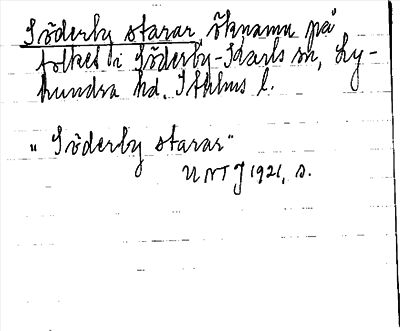 Söderby starar, öknamn på
folket i Söderby-Karls sn, Ly-
hundra hd. Sthlms l.
"Söderby starar"
UNT J 1921, s.